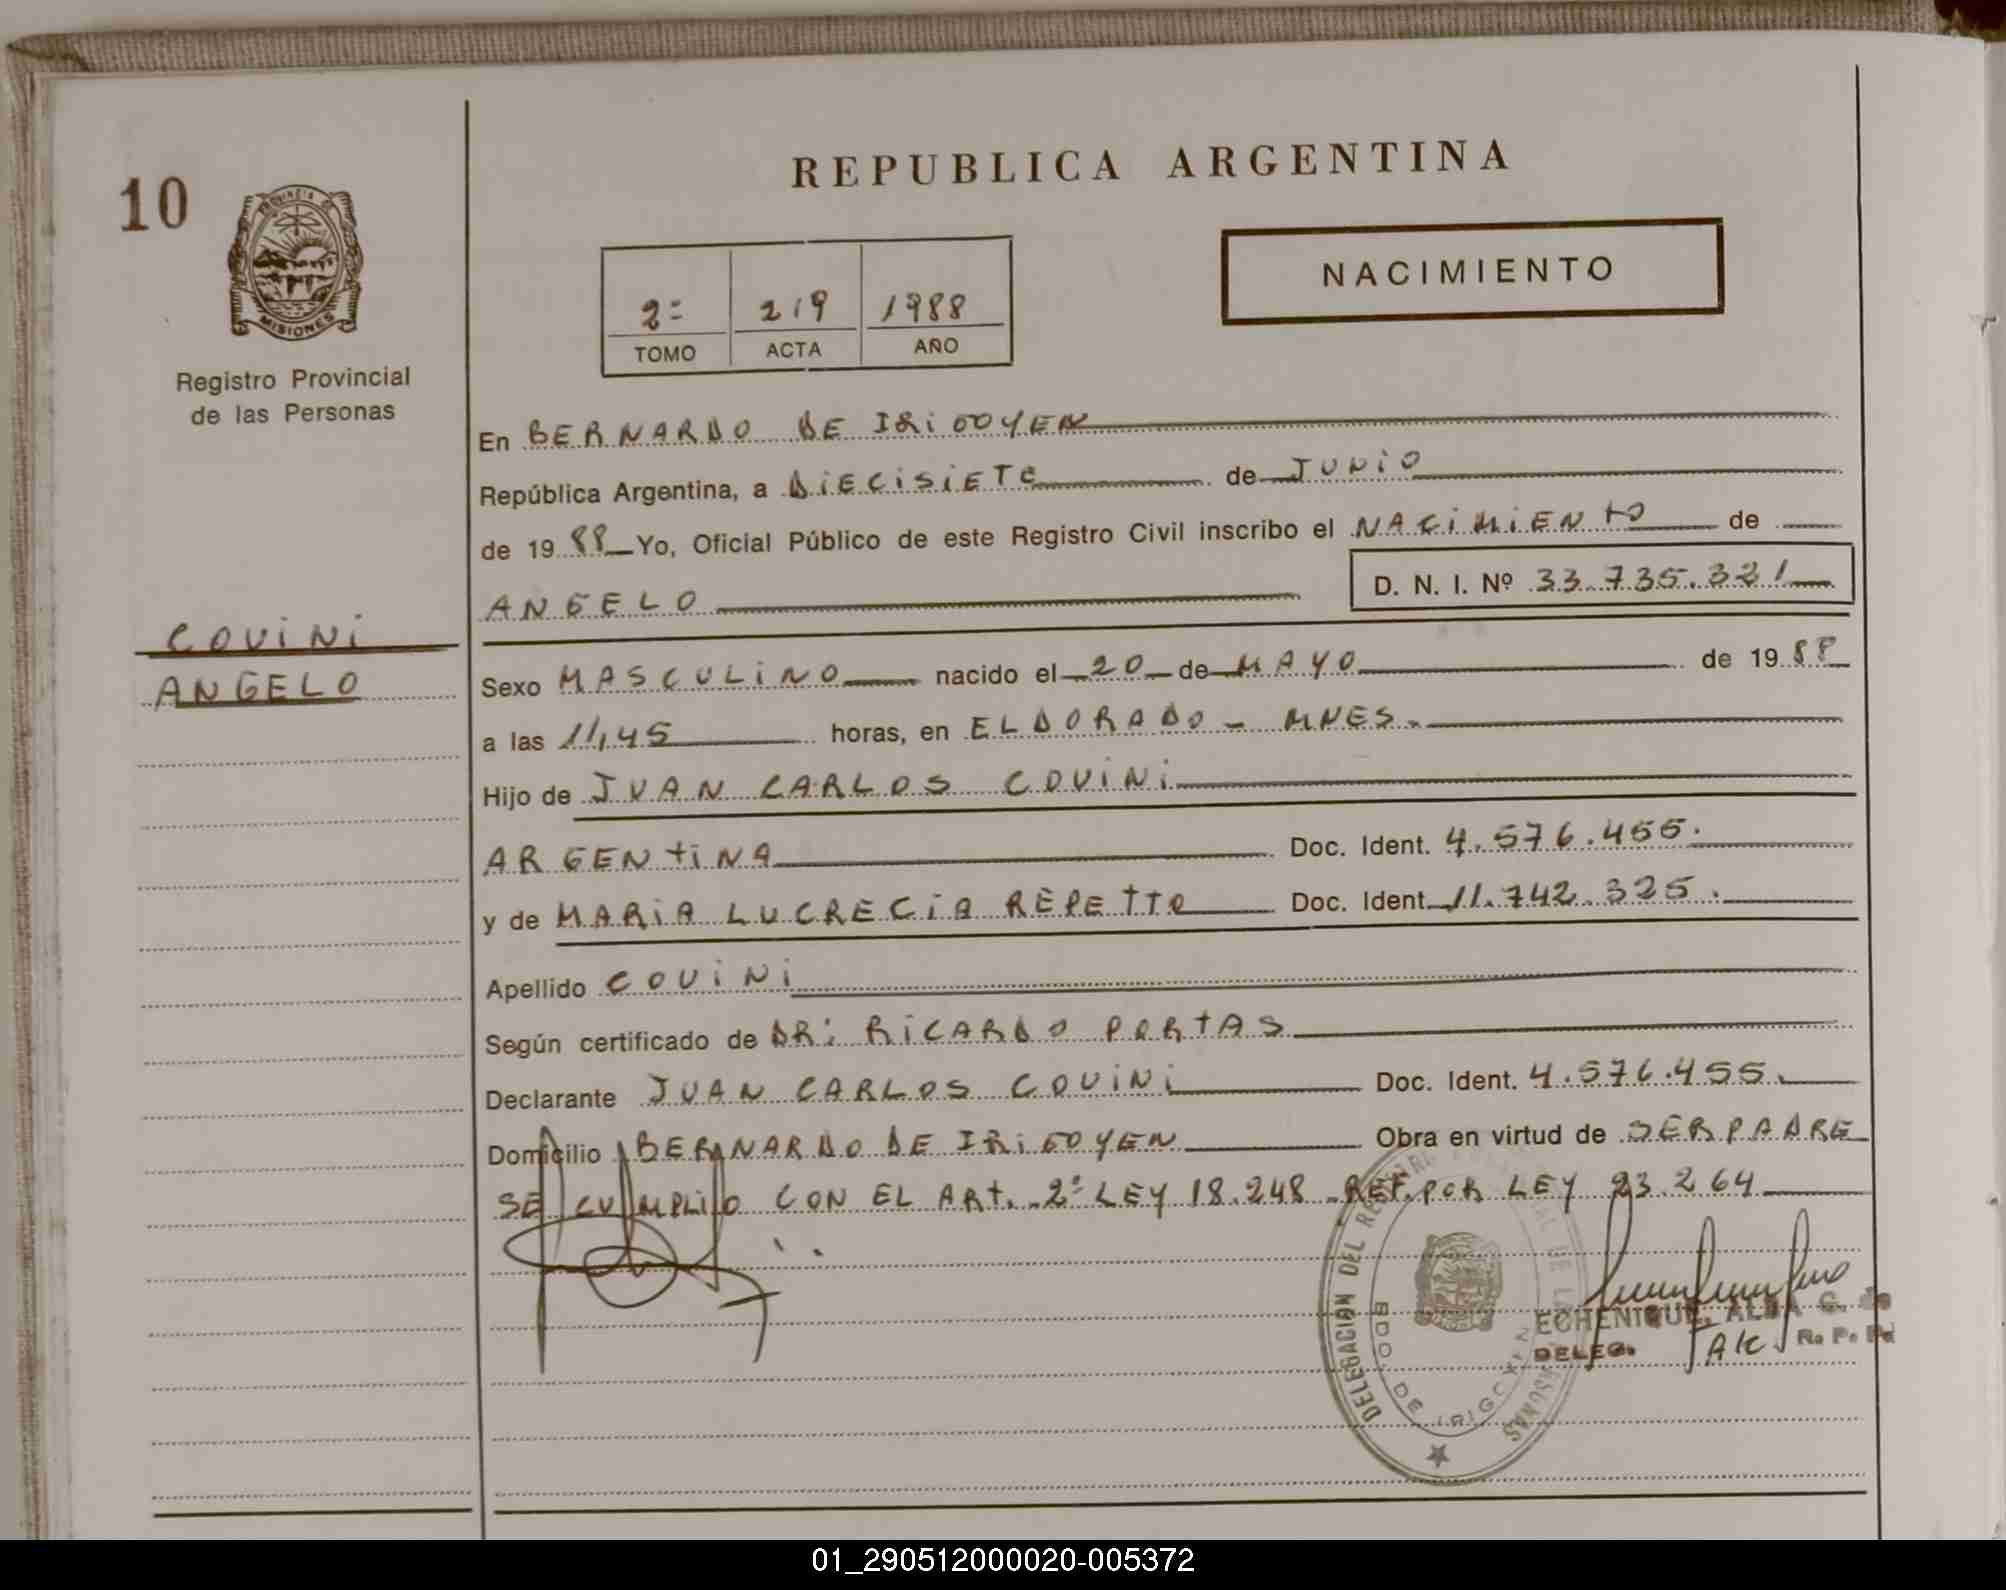 10
PROVINCIA DE
MISIONES
Registro Provincial
de las Personas
COVINI
ANGELO
REPUBLICA ARGENTINA
NACIMIENTO
2º 219 1988
TOMO ACTA AÑO
En BERNARDO DE IRIGOYEN
República Argentina, a DIECISIETE de JUNIO
de 19 88 Yo, Oficial Público de este Registro Civil inscribo el NACIMIENTO de
ANGELO D. N. I. Nº 33.735.321
Sexo MASCULINO nacido el 20 de MAYO de 19 88
a las 11,45 horas, en ELDORADO - MNES.
Hijo de JUAN CARLOS COVINI
ARGENTINA Doc. Ident. 4.576.455.
y de MARIA LUCRECIA REPETTO Doc. Ident. 11.742.325.
Apellido COVINI
Según certificado de DR: RICARDO PORTAS
Declarante JUAN CARLOS COVINI Doc. Ident. 4.576.455.
Domicilio BERNARDO DE IRIGOYEN Obra en virtud de SER PADRE
SE CUMPLIO CON EL ART. 2º LEY 18.248 REF. POR LEY 23.264
DELEGACION DEL REGISTRO PROVINCIAL DE LAS PERSONAS
BDO. DE IRIGOYEN
ECHENIQUE, ALBA G. de
DELEG. R. P. P.
01_290512000020-005372